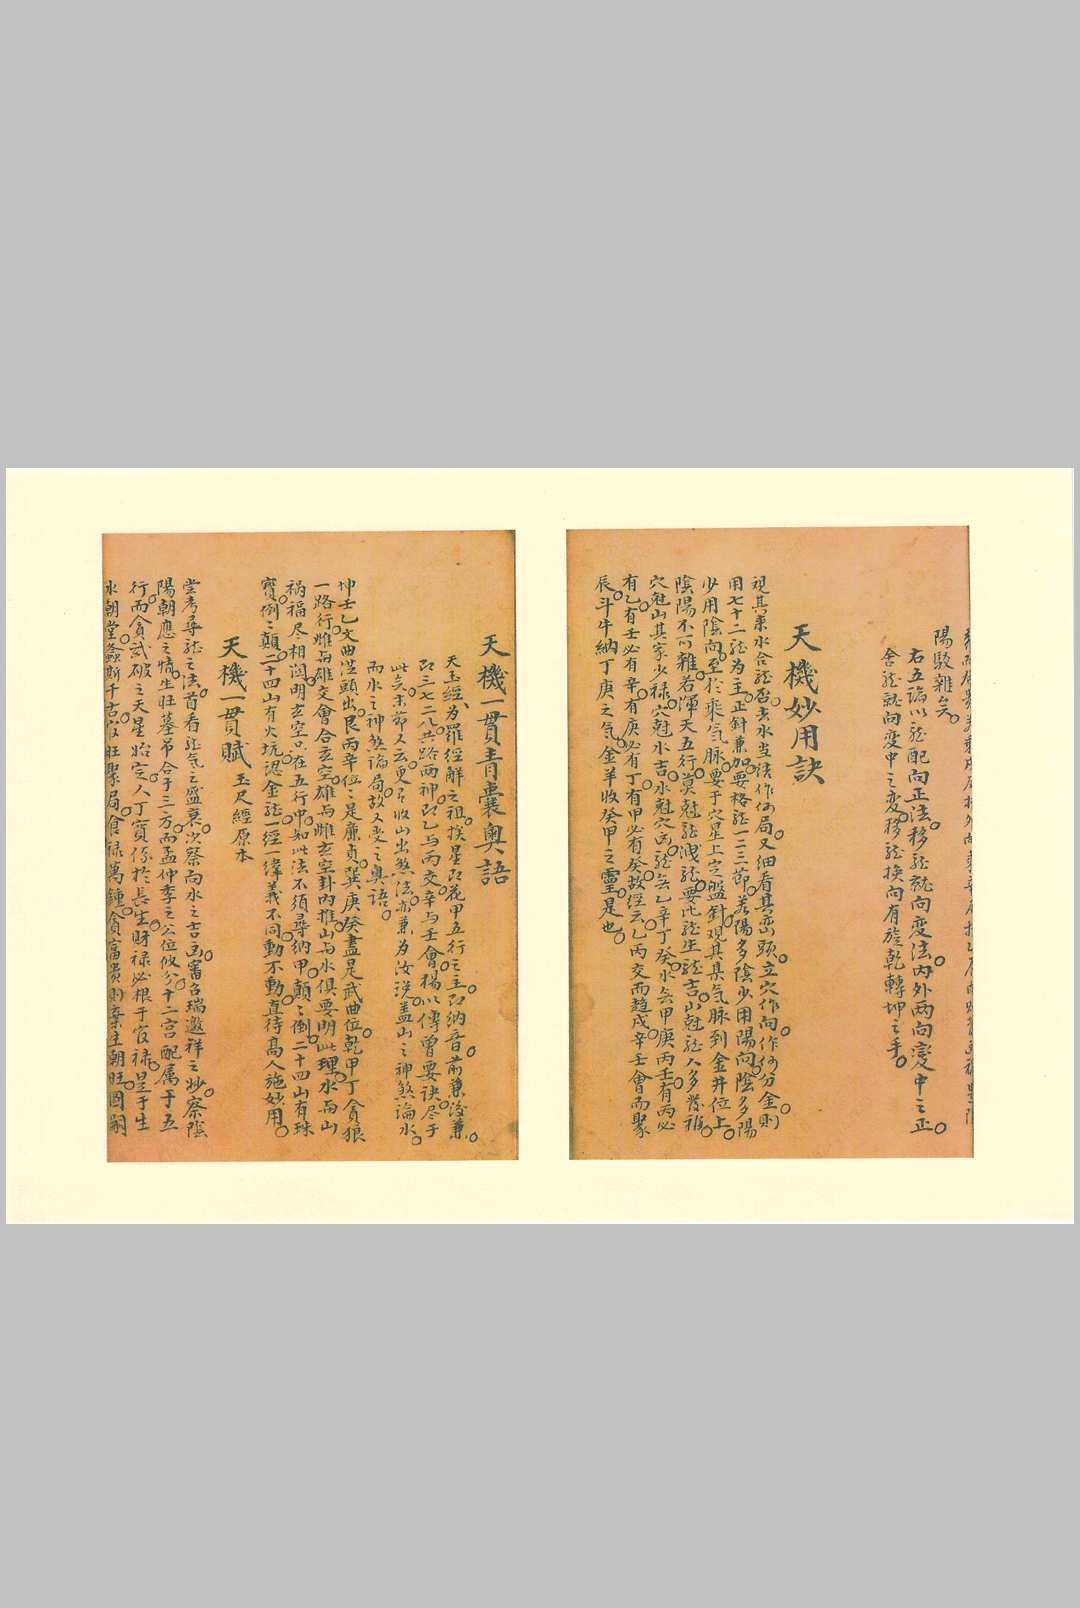 陽駁雜矣。
右五論以龍配向正法。移龍就向変法。内外両向変中之正。
舍龍就向変中之変。移龍換向有旋乾轉坤之手。
天機妙用訣
視其来水合龍否。去水当法作何局。又細看其巒頭。立穴作向。作何分金。則
用七十二龍为主。正針兼加。要格龍一二三節。若陽多陰少用陽向。陰多陽
少用陰向。至於乘氣脉。要于穴星上定盤針。观其来氣脉到金井位上。
陰陽不可雜。若渾天五行。莫尅龍洩龍。要比龍生龍吉。山尅龍人多發福。
穴尅山其家少禄。穴尅水吉。水尅穴凶。龍無乙辛丁癸。水無甲庚丙壬。有丙必
有乙。有壬必有辛。有庚必有丁。有甲必有癸。故經云。乙丙交而趨戍。辛壬會而聚
辰。斗牛納丁庚之气。金羊收癸甲之靈。是也。
天機一貫青囊奥語
天玉經、为羅經解之祖。挨星即花甲五行之主。即納音前兼後兼。
即三七二八共路両神。即乙与丙交。辛与壬會。楊以傳曽要诀。尽于
此矣。末节又云。更有收山出煞法。亦兼为汝说。盖山之神煞論水。
而水之神煞論局。故又变之奥語。
坤壬乙文曲從頭出。艮丙辛位二是廉貞。巽庚癸盡是武曲位。乾甲丁貪狼
一路行。雌與雄交會合玄空。雄與雌玄空卦内推。山与水俱要明此理。水與山
祸福尽相関。明玄空只在五行中。知此法不须尋納甲。顛二倒二十四山有珠
寳。倒二顛二十四山有火坑。認金龍一經一緯義不同。動不動直待髙人施妙用。
天機一貫賦 玉尺經原本
尝考尋龍之法。首看龍氣之盛衰。次察向水之吉凶。審召瑞邀祥之妙。察陰
陽朝應之情。生旺墓吊合于三方。而孟仲季之公位攸分。十二宫配属于五
行。而貪武破之天星始定。人丁寳係於長生。财禄必根于官禄。是于生
水朝堂。螽斯千古。官旺聚局。食禄萬鍾。貪富貴則棄生朝旺。圖嗣